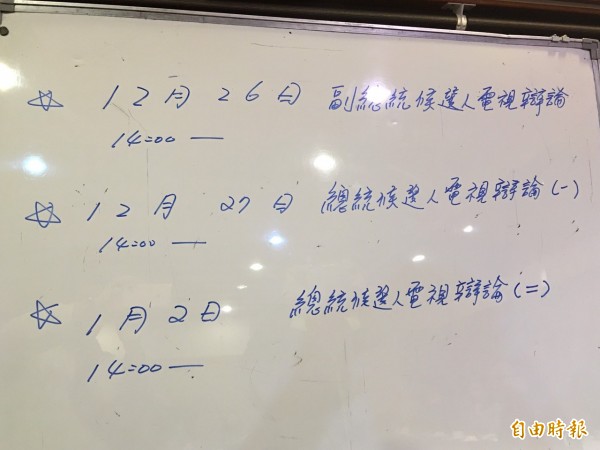 ☆ 12月26日 副總統候選人電視辯論
14:00 —
☆ 12月27日 總統候選人電視辯論(一)
14:00 —
☆ 1月2日 總統候選人電視辯論(二)
14:00 —
自由時報